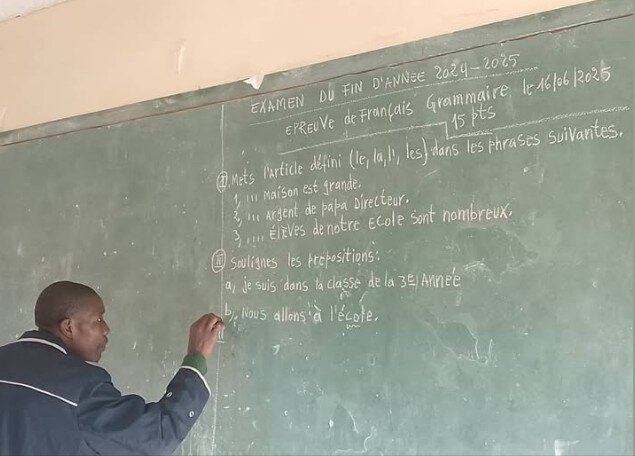 EXAMEN DU FIN D'ANNEE 2024-2025
EPREUVE de Français Grammaire le 16/06/2025
15 pts
I Mets l'article défini (le, la, l', les) dans les phrases suivantes.
1, ... Maison est grande.
2, ... Argent de papa Directeur.
3, .... Élèves de notre Ecole sont nombreux.
II Soulignes les prépositions:
a, Je suis dans la classe de la 3E Année
b, Nous allons à l'école.